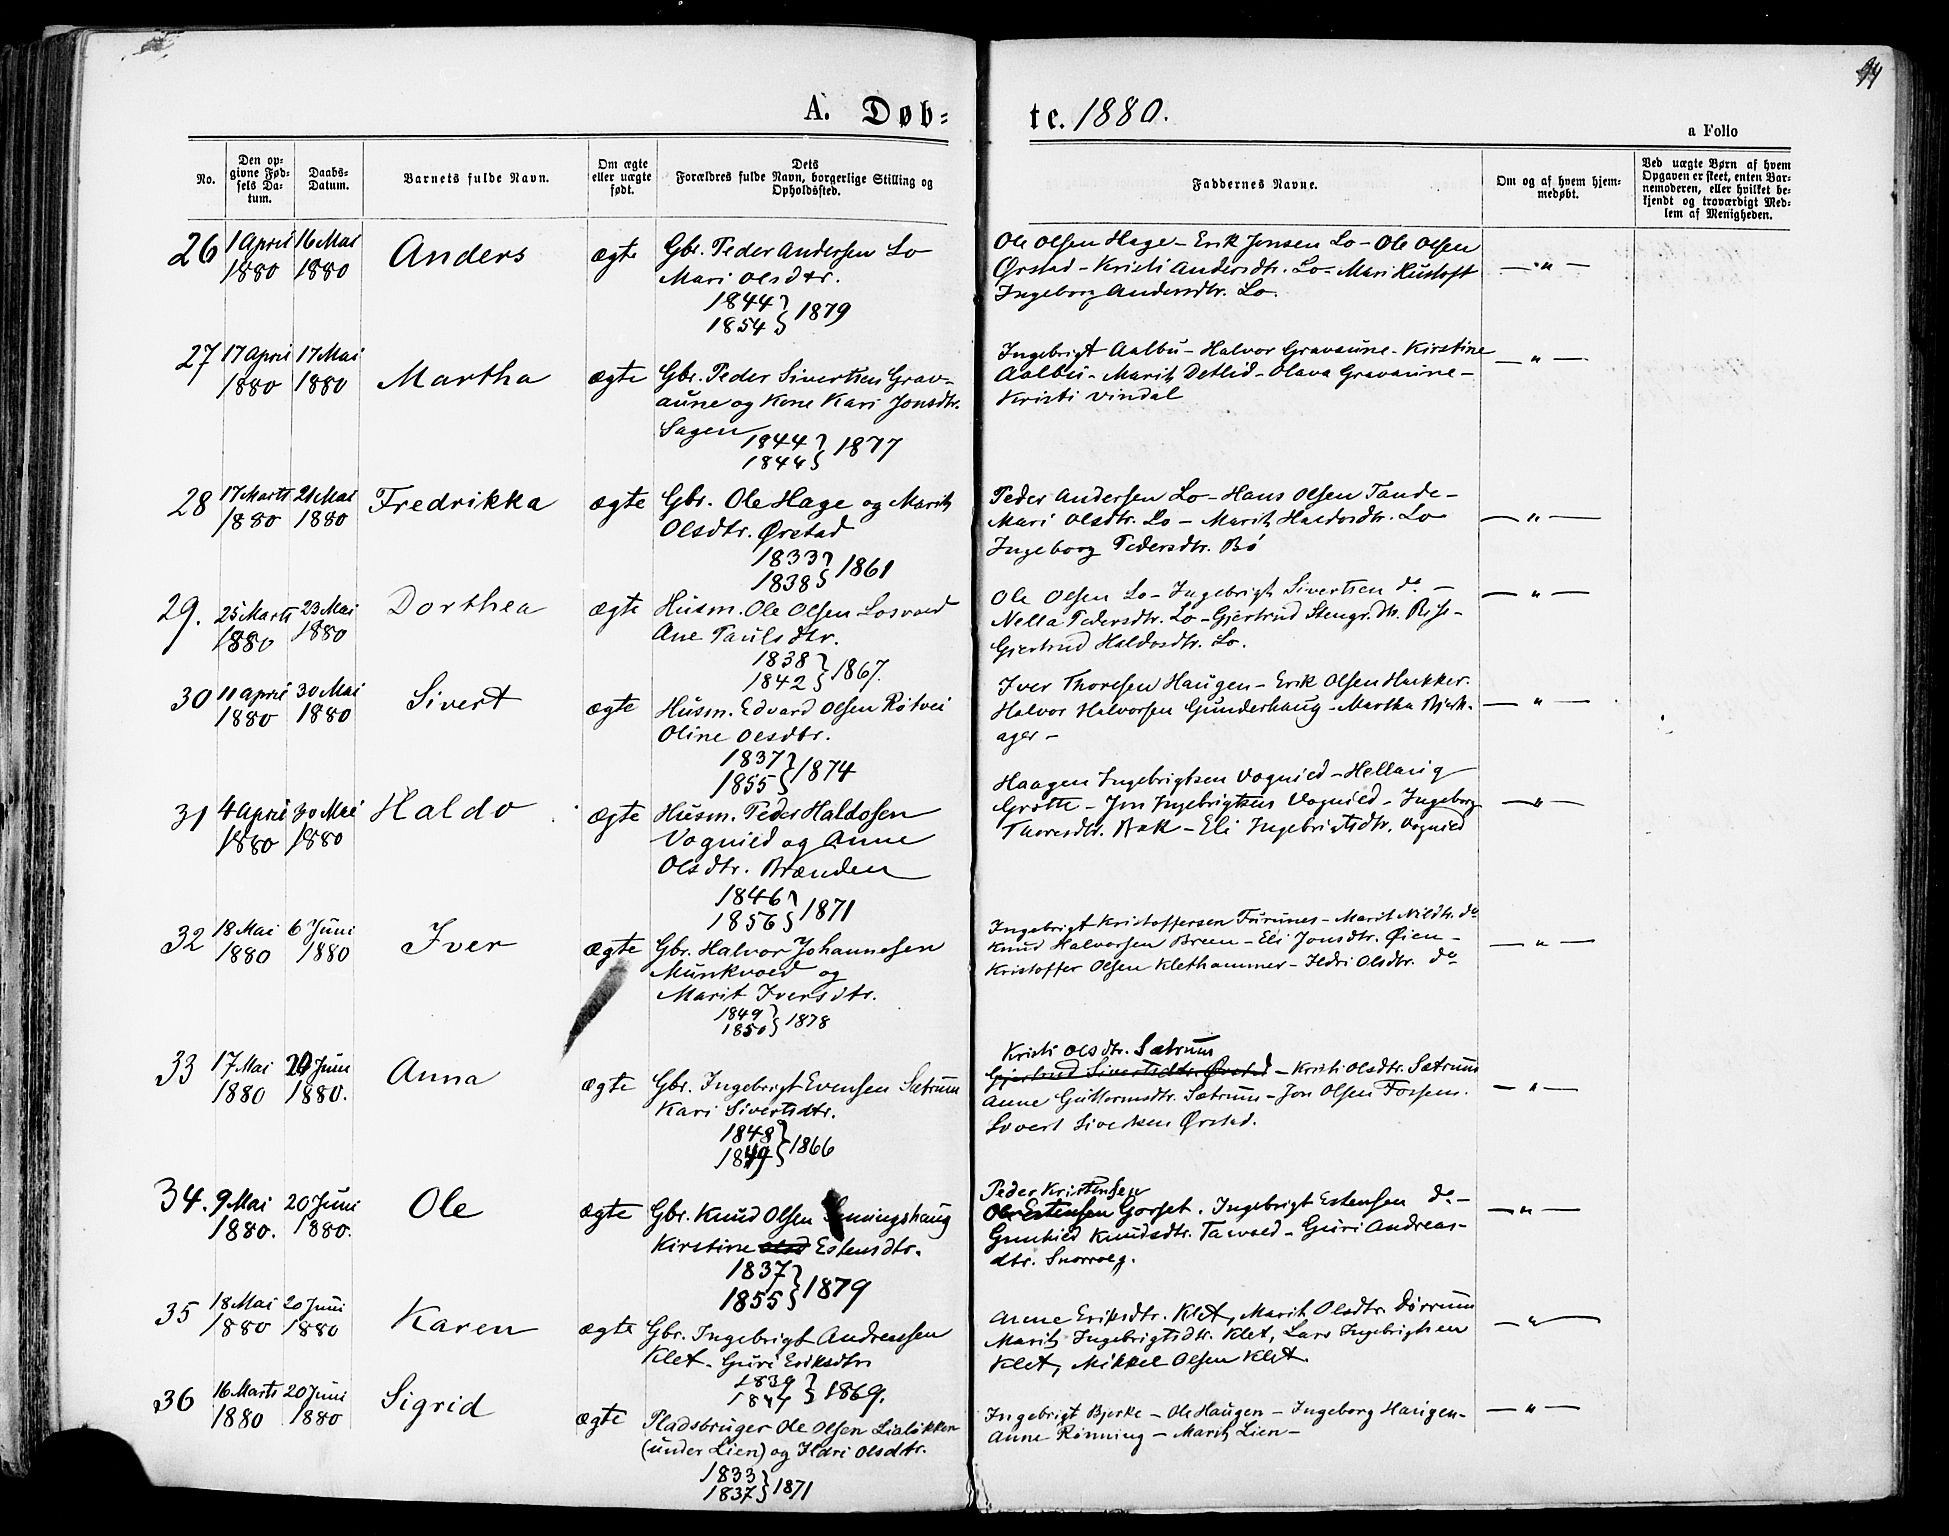 A. Døb=
te. 1880.
a Folio
No.
Den op-
givne Fød-
sels Da-
tum.
Daabs-
Datum.
Barnets fulde Navn.
Om ægte
eller uægte
født.
Dets
Forældres fulde Navn, borgerlige Stilling og
Opholdssted.
Faddernes Navne.
Om og af hvem hjem-
medøbt.
Ved uægte Børn af hvem
Opgaven er skeet, enten Bar-
nemoderen, eller hvilket be-
kjendt og troværdigt Med-
lem af Menigheden.
26 1 April 1880 16 Mai 1880 Anders ægte
Gbr. Peder Andersen Lo
Mari Olsdtr.
1844 } 1879
1854
Ole Olsen Hage - Erik Jonsen Lo - Ole Olsen
Ørstad - Kristi Andersdtr. Lo - Mari Hustoft
Ingeborg Andersdtr. Lo.
— " —
27 17 April 1880 17 Mai 1880 Martha ægte
Gbr. Peder Sivertsen Grav-
aune og Kone Kari Jonsdtr.
Sagen
1844 } 1877
1844
Ingebrigt Aalbu - Halvor Gravaune - Kirstine
Aalbu - Marit Detlid - Olava Gravaune -
Kristi Vindal
— " —
28 17 Marts 1880 21 Mai 1880 Fredrikka ægte
Gbr. Ole Hage og Marit
Olsdtr. Ørstad
1833 } 1861
1838
Peder Andersen Lo - Hans Olsen Tande -
Mari Olsdtr. Lo - Marit Haldosdtr. Lo
Ingeborg Pedersdtr. Bö
— " —
29. 25 Marts 1880 23 Mai 1880 Dorthea ægte
Husm. Ole Olsen Losvold
Ane Paulsdtr.
1838 } 1867.
1842
Ole Olsen Lo - Ingebrigt Sivertsen do -
Nella Pedersdtr. Lo - Gjertrud Stengr.dtr.
Gjertrud Haldosdtr. Lo.
— " —
30 11 April 1880 30 Mai 1880 Sivert ægte
Husm. Edvard Olsen Rötvei
Oline Olsdtr.
1837 } 1874
1855
Iver Thoresen Haugen - Erik Olsen Hækker.
Halvor Halvorsen Gunderhaug - Martha Bjerk-
ager -
— " —
31 4 April 1880 30 Mai 1880 Haldo ægte
Husm. Peder Haldosen
Vognild og Anne
Olsdtr. Brænden
1846 } 1871
1856
Haagen Ingebrigtsen Vognild - Hellarig
Grötte - Jon Ingebrigtsen Vognild - Ingeborg
Thoresdtr. Bak - Eli Ingebrigtsdtr. Vognild
— " —
32 18 Mai 1880 6 Juni 1880 Iver ægte
Gbr. Halvor Johannesen
Munkvold og
Marit Iversdtr.
1849 } 1878
1850
Ingebrigt Kristoffersen Furunes - Marit Nildtr. do
Knud Halvorsen Breen - Eli Jonsdtr. Øien -
Kristoffer Olsen Klethammer - Ildri Olsdtr. do
— " —
33 17 Mai 1880 20 Juni 1880. Anna ægte
Gbr. Ingebrigt Evensen Sætrum
Kari Sivertsdtr.
1848 } 1866
1849
Kristi Olsdtr. Sætrum
Gjertrud Sivertsdtr. Ørstad - Kristi Olsdtr. Sætrum
Anne Guttormsdtr. Sætrum - Jon Olsen Fossem.
Sivert Sivertsen Ørstad.
— " —
34. 9 Mai 1880. 20 Juni 1880. Ole ægte
Gbr. Knud Olsen
Kirstine Olsd Estensdtr.
1837 } 1879
1855
Peder Kristensen
Ole Estensen Gorset. Ingebrigt Estensen do -
Gunhild Knudsdtr. Tævold - Guri Andreas-
dtr. Snoxroeg.
— " —
35 18 Mai 1880 20 Juni 1880 Karen ægte
Gbr. Ingebrigt Andreassen
Klet - Guri Eriksdtr.
1839 } 1869.
1844
Anne Eriksdtr. Klet, Marit Olsdtr. Dørrum
Marit Ingebrigtsdtr. Klet, Lars Ingebrigtsen
Klet, Mikkel Olsen Klet.
— " —
36 16 Marts 1880 20 Juni 1880 Sigrid ægte
Pladsbruger Ole Olsen Lialökken
(under Lien) og Ildri Olsdtr.
1833 } 1871
1837
Ingebrigt Bjerke - Ole Haugen - Ingeborg Haugen -
Anne Rønning - Marit Lien -
— " —